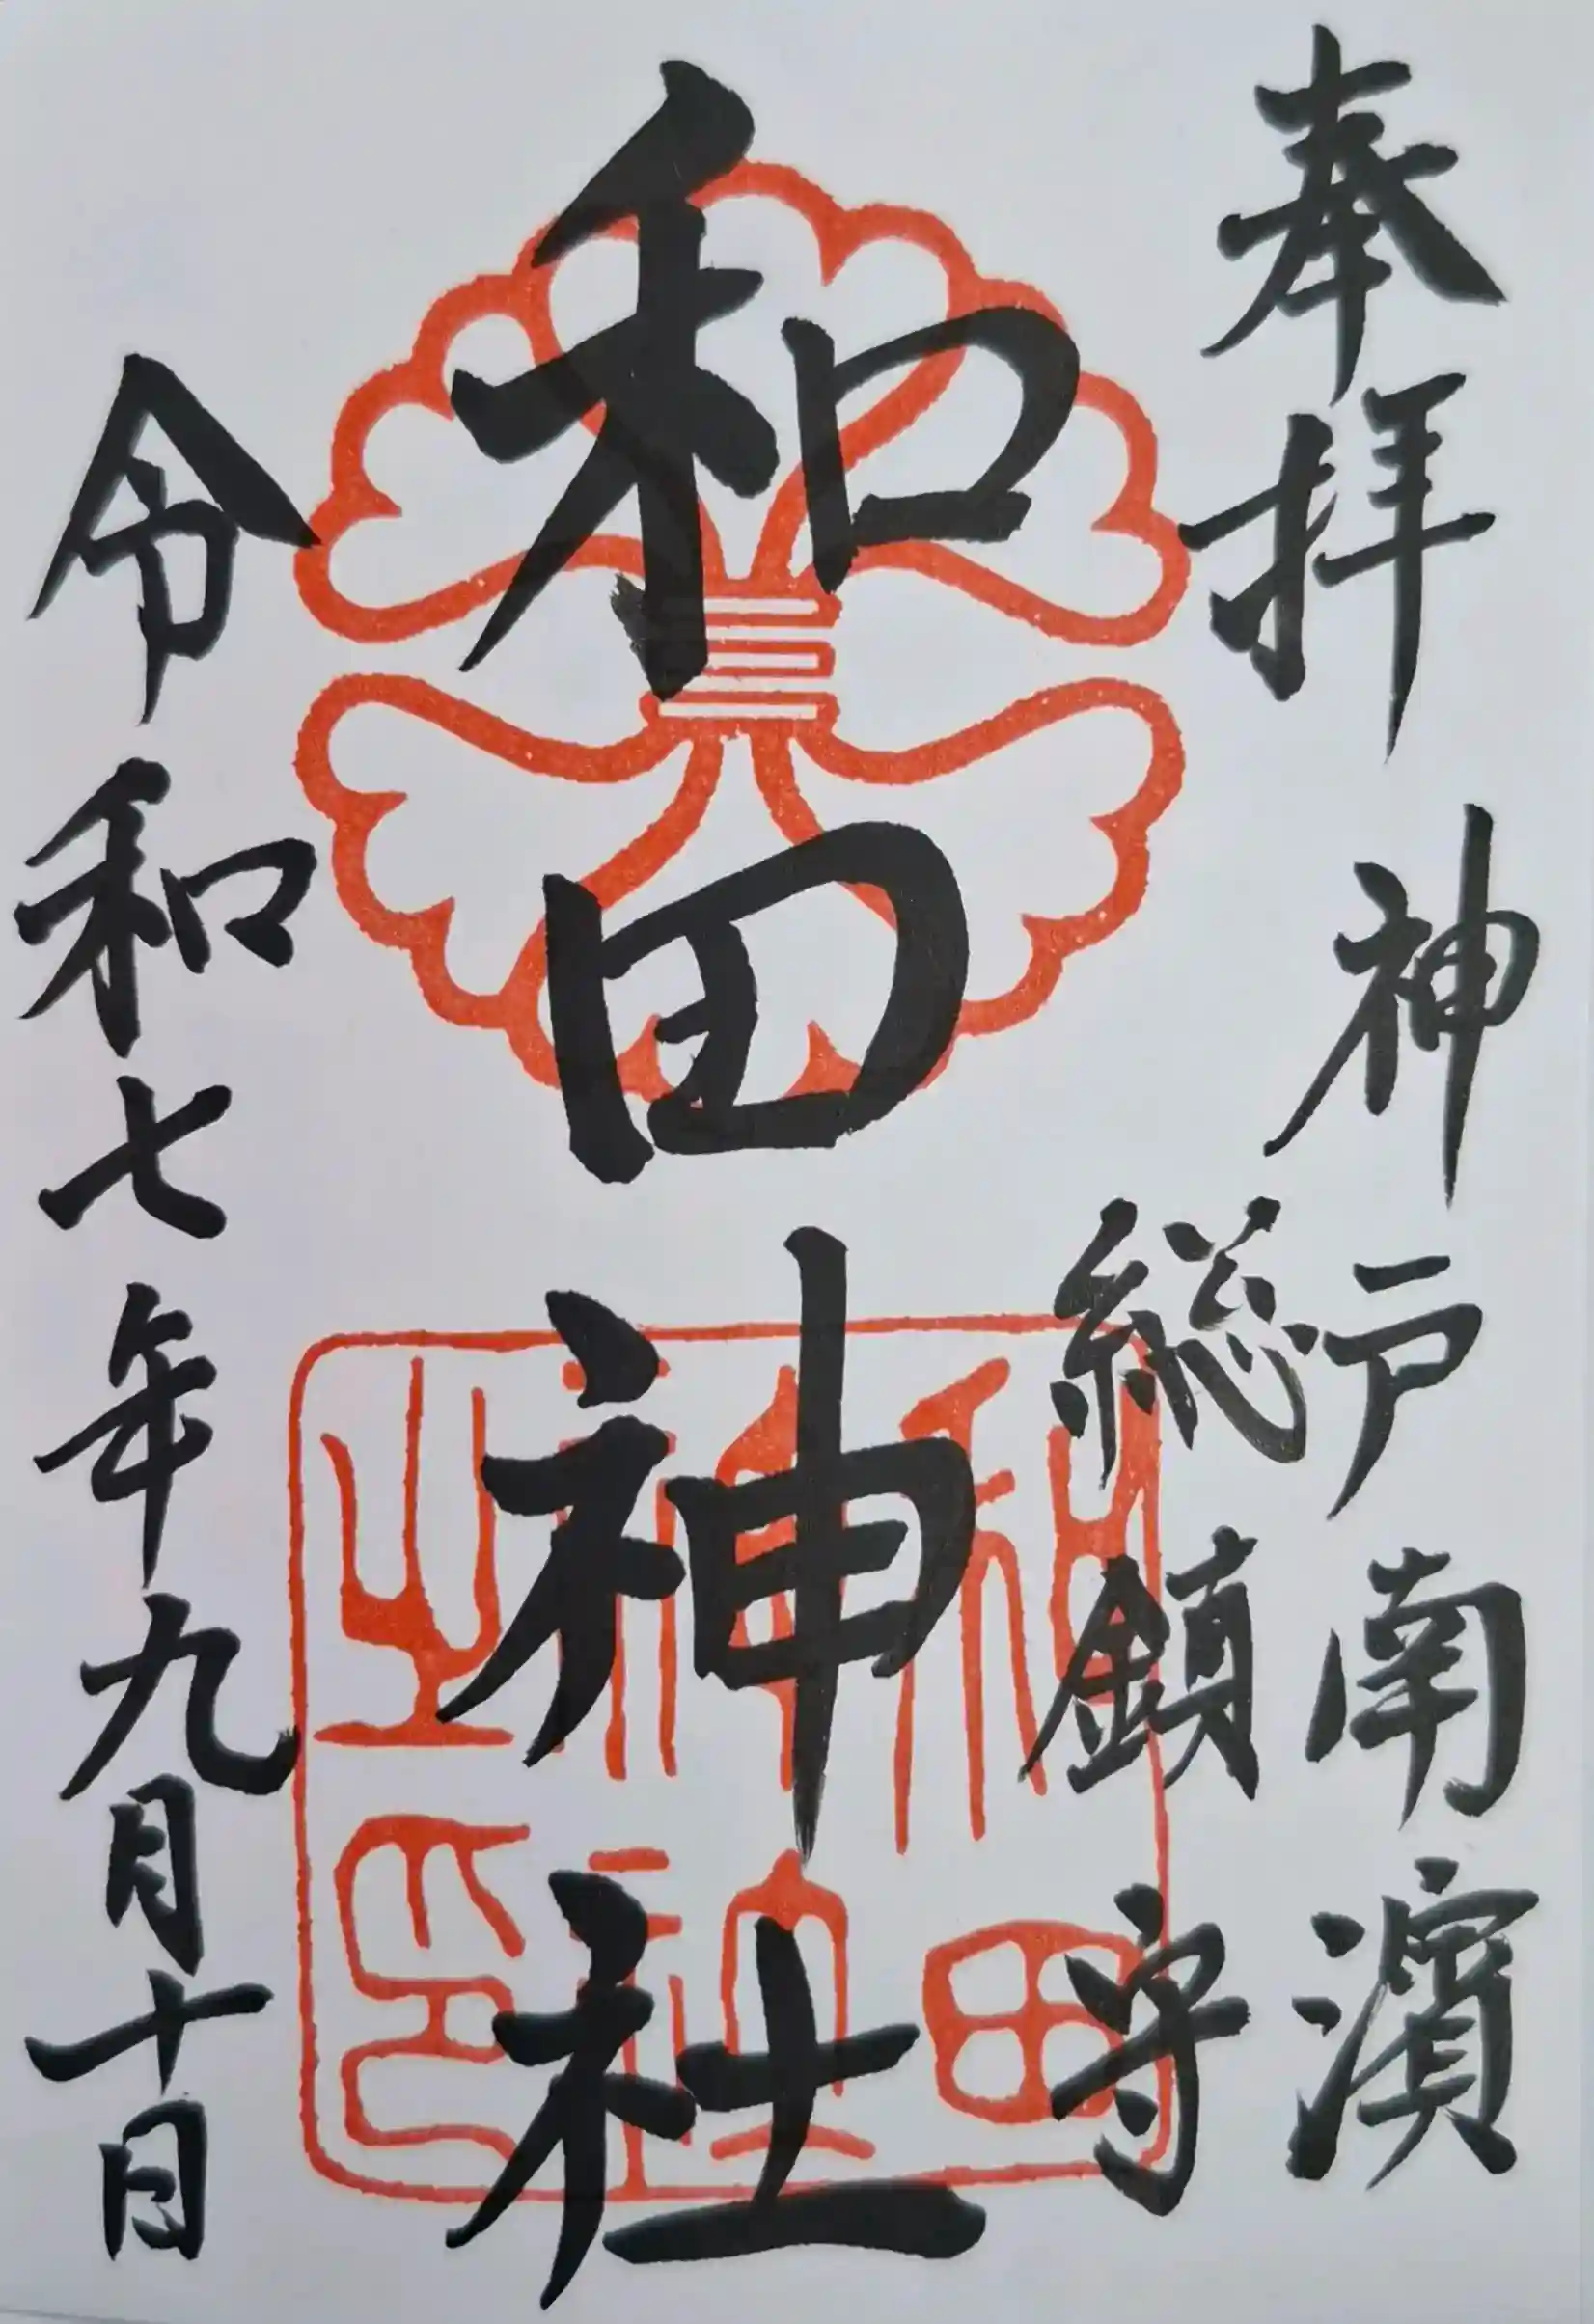 奉拝
神戸南濱
総鎮守
和田神社
和田神社之印
令和七年九月十日